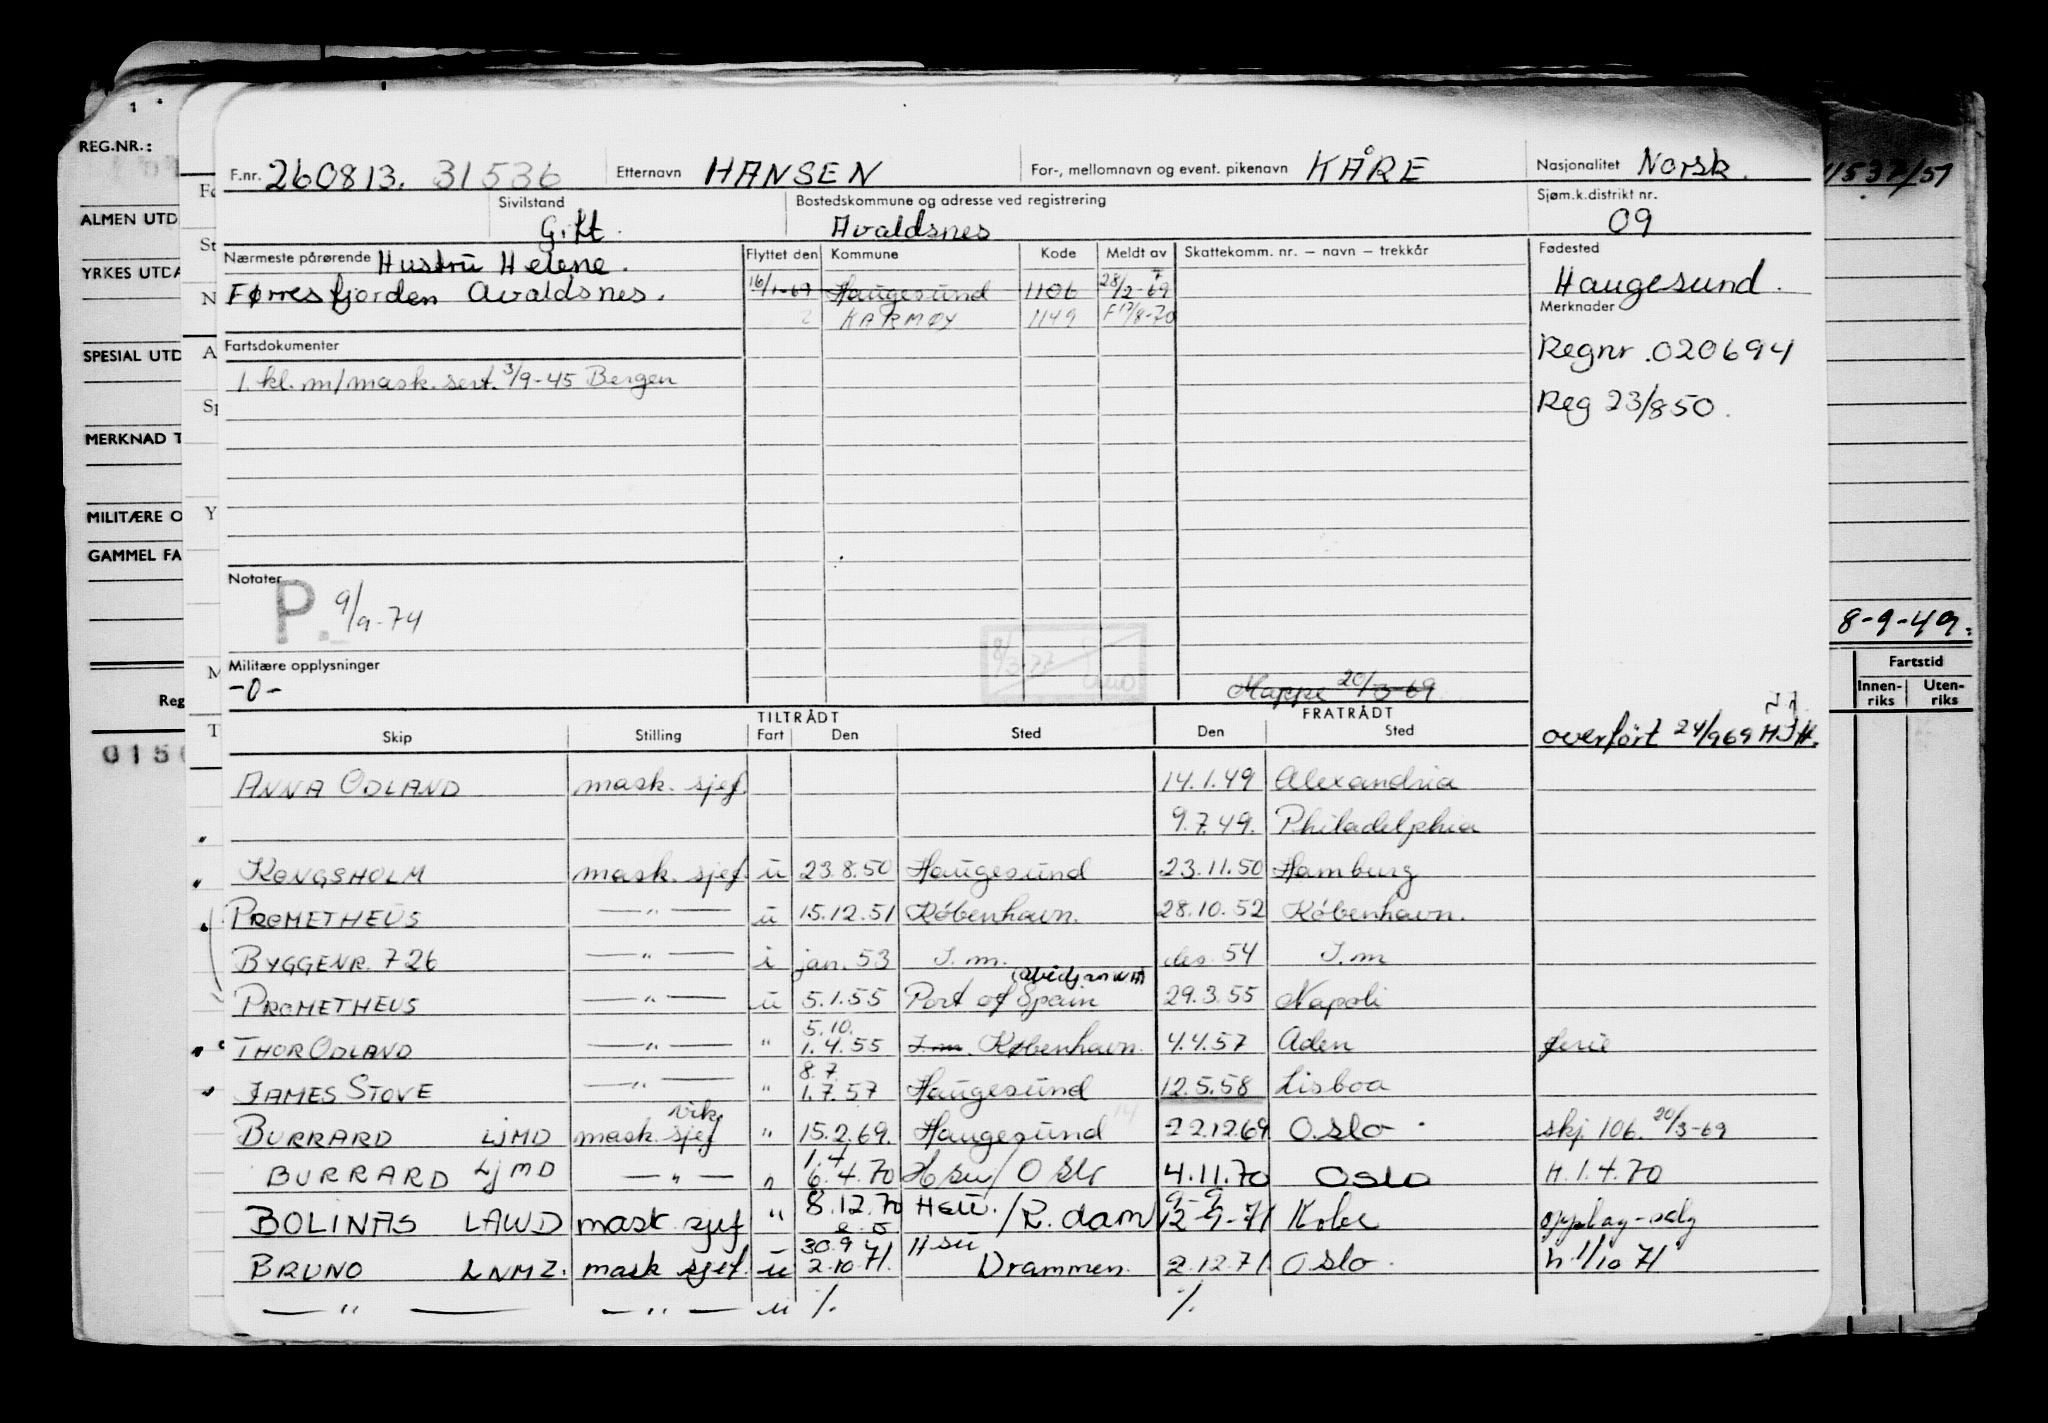 REG.NR.:
ALMEN UTD
YRKES UTDA
SPESIAL UTD
MERKNAD T
MILITÆRE O
GAMMEL FA
Reg
015
F.nr. 260813. 31536 Etternavn HANSEN For-, mellomnavn og event. pikenavn KÅRE Nasjonalitet Norsk.
Sivilstand Gift. Bostedskommune og adresse ved registrering Avaldsnes Sjøm.k.distrikt nr. 09
Nærmeste pårørende Hustru Helene. Flyttet den Kommune Kode Meldt av Skattekomm. nr. — navn — trekkår Fødested
Førresfjorden Avaldsnes. 16/1-69 Haugesund 1106 28/2-69 Haugesund.
2 KARMØY 1149 F17/8-70 Merknader
Fartsdokumenter Regnr. 020694
1. kl. m/mask. sert. 3/9-45 Bergen Reg 23/850.
Notater
P. 9/9-74
8/3-77
Militære opplysninger
-0- Mappe 20/3-69
TILTRÅDT FRATRÅDT
Skip Stilling Fart Den Sted Den Sted overført 24/969 HJH.
ANNA ODLAND mask. sjef. 14.1.49 Alexandria
9.7.49. Philadelphia
KONGSHOLM mask. sjef. u 23.8.50 Haugesund 23.11.50 Hamburg
PROMETHEUS — " — u 15.12.51 København. 28.10.52 København.
BYGGENR. 726 — " — i jan. 53 I.m. des. 54 I.m
PROMETHEUS — " — u 5.1.55 Port of Spain 29.3.55 Napoli
5.10.
THOR ODLAND — " — " 1.4.55 I.m. København. 4.4.57 Aden ferie
8.7.
JAMES STOVE — " — " 1.7.57 Haugesund 12.5.58 Lisboa
vik.
BURRARD LJMD mask. sjef " 15.2.69. Haugesund 22.12.69 Oslo. skj. 106. 20/3-69
1.4
BURRARD LJMD — " — " 6.4.70 Hsu/Oslo 4.11.70 OSLO H. 1.4.70
BOLINAS LAWD mask. sjef " 8.12.70 /R.dam 12-9-71 Kobe opplag-salg
30.9 Hsu
BRUNO LNMZ. mask sjef. u 2.10.71. Drammen. 2.12.71. Oslo. h. 1/10 71
— " — — " — u %. %.
11537/51
8-9-49.
Fartstid
Innen-
riks
Uten-
riks